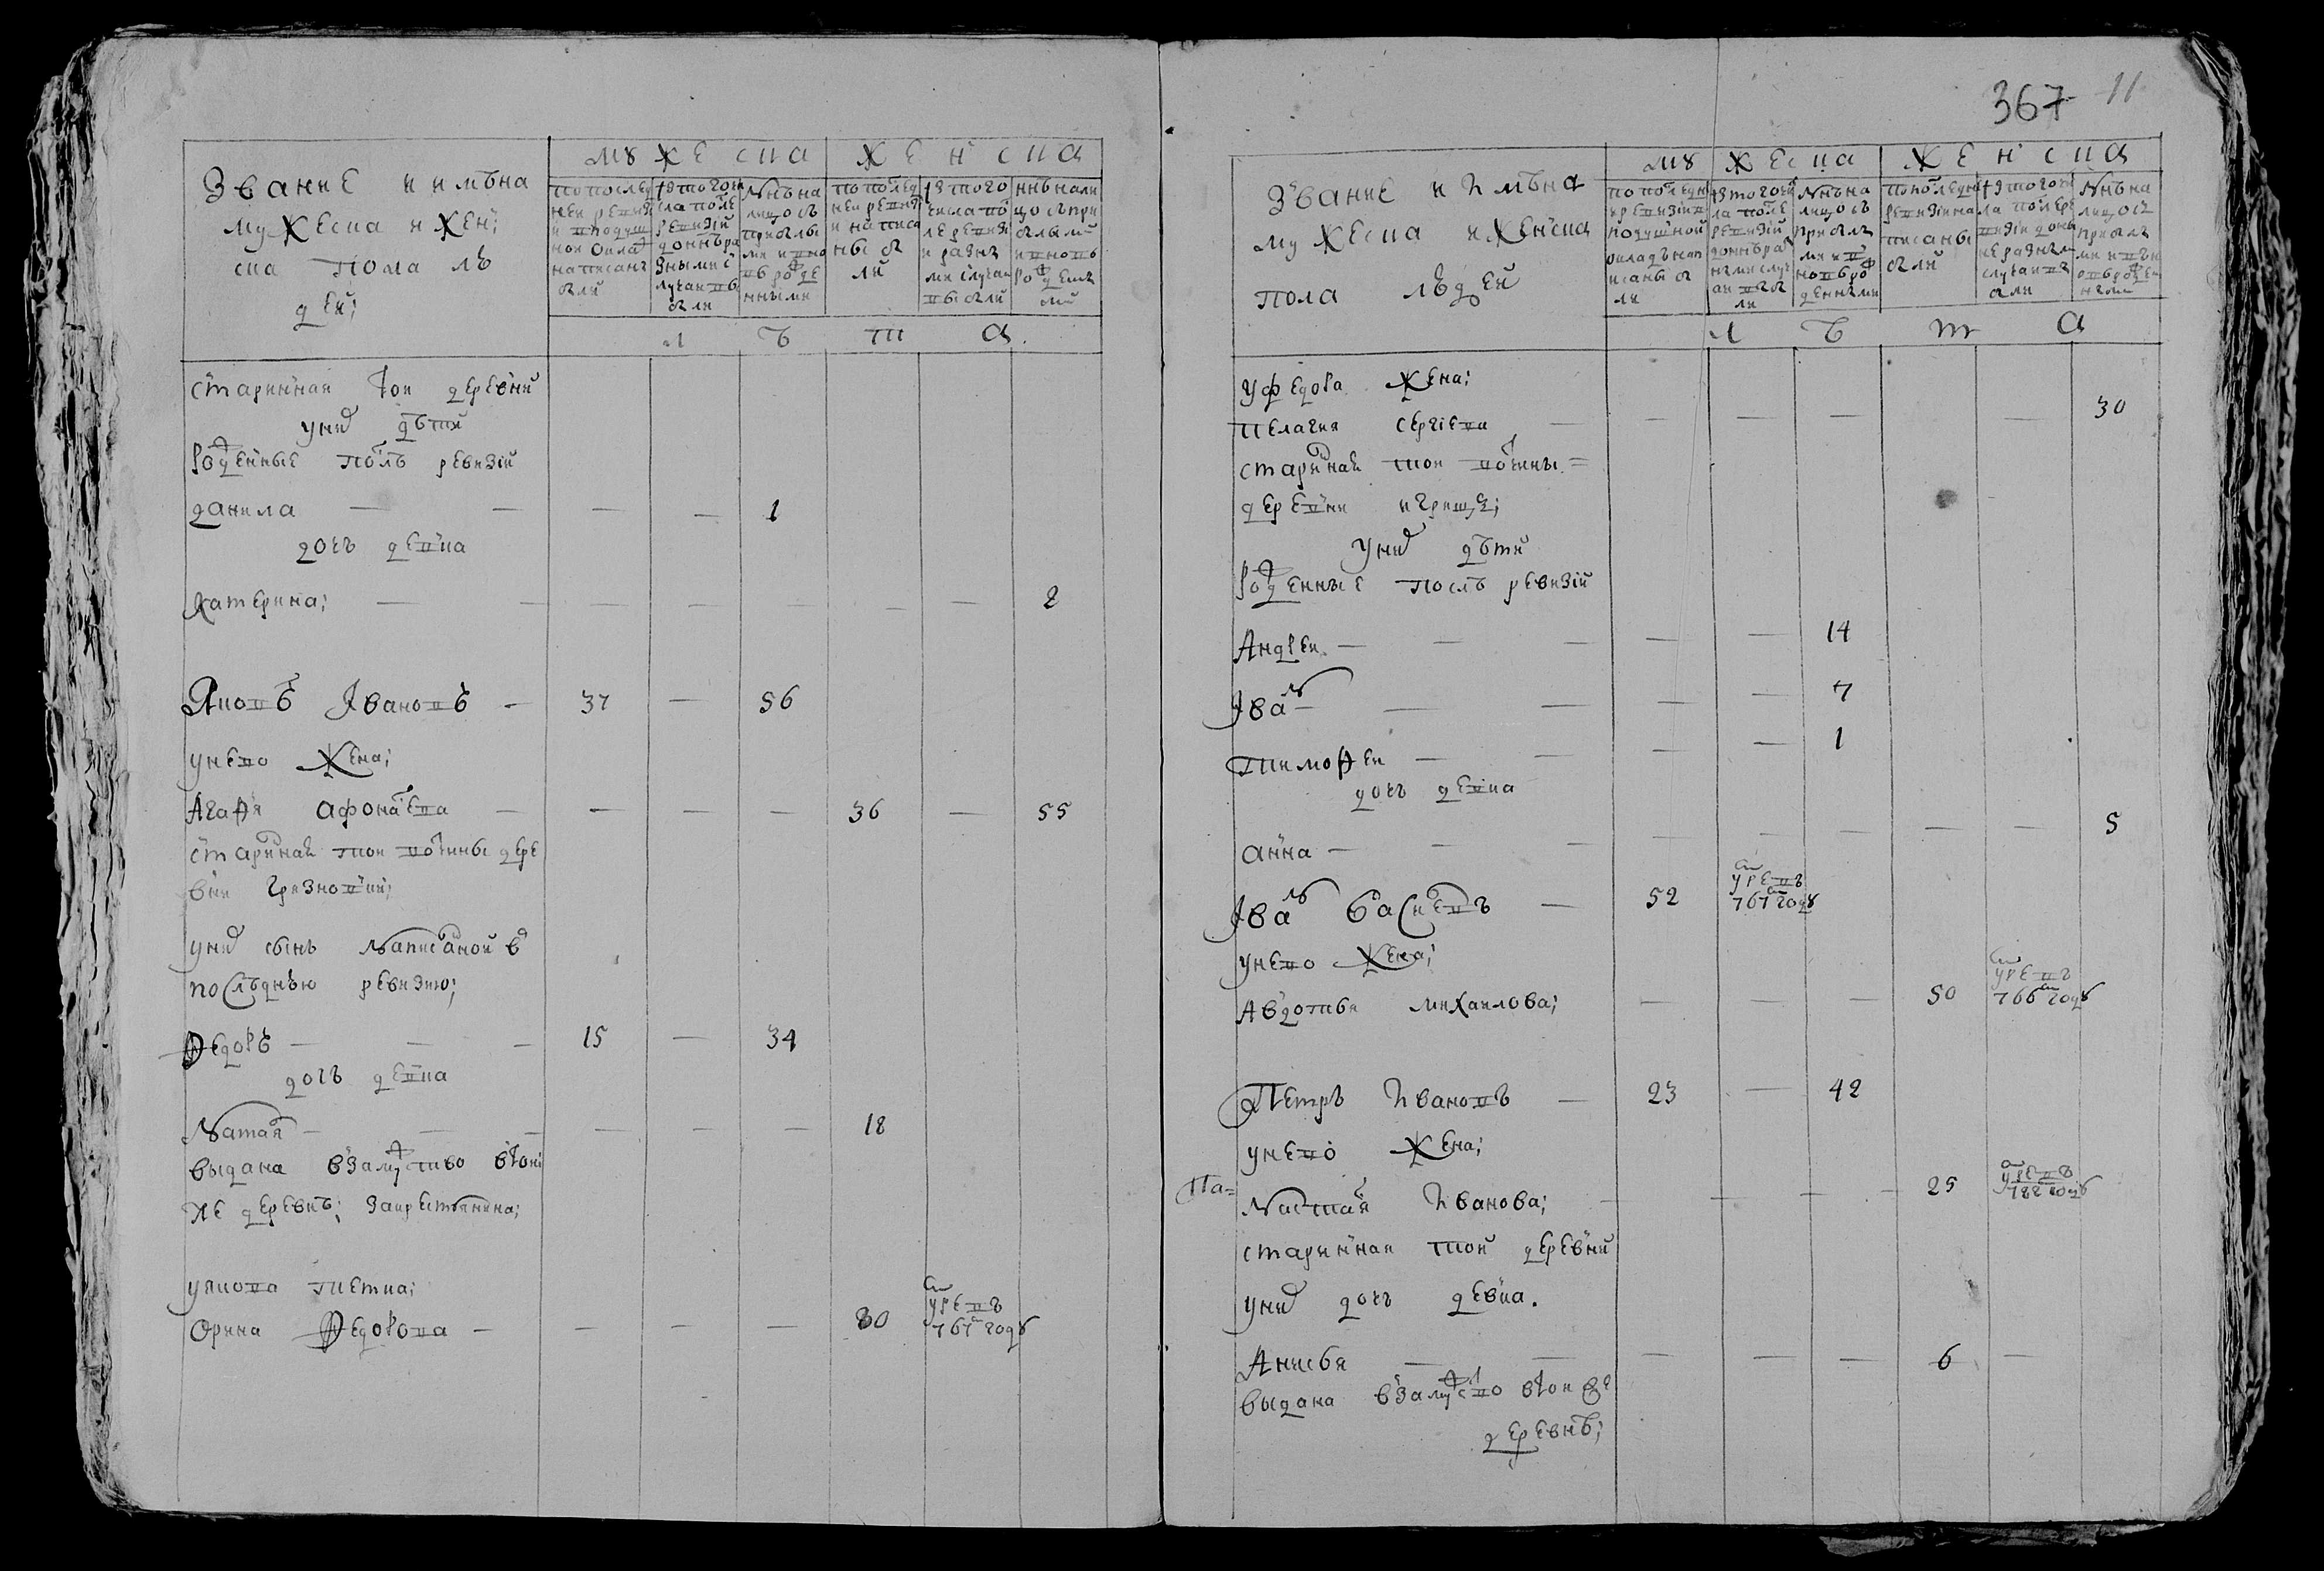 367 11
Звание и имѣна
мужеска и жен;
ска пола лю
дей;
мужеска женска
по послед
ней ревизй
и в подуш
ной окла
написанъ
были
изъ того чи
сла после
ревизiй
доннѣ ра
зными с
лучаи въ
были
Нынѣ на
лицо съ
прибылы
ми и вно
въ рожде
нными
по послед
ней ревизй
и написа
ны бы
ли
изъ того
числа по
ле ревизй
и разнъ
ми случаи
выбыли
ннѣ нали
цо съ при
былыми
и вновъ
рожденъ
ми
лѣта
старинная той деревни
у них дѣти
рожденные послѣ ревизiй
данила — — — — 1
дочь девка
катерина; — — — — — — — — 2
Яковъ Iвановъ — 37 — 56
у него жена;
Агафя афонасева — — — — 36 — 55
старинная той вотчины дере
вни грязновки;
у них сынъ написанной в
последнѣю ревизию;
Федоръ — — — 15 — 34
дочь девка
Наталя — — — — — — 18
выдана взамужство втой
же деревнѣ; за крестьянина;
у якова тетка;
Орина Федорова — — — — 80 умре въ 767 году
Звание и имѣна
мужеска и женска
пола людей
мужеска женска
по последне
и ревизiи в
подушной
окладъ нап
исаны бы
ли
изъ того чис
ла после
ревизiй
доннѣ раз
ными случ
аи выбы
ли
Нынѣ на
лицо съ
прибылъ
ми и в
новъ рож
денными
по последне
ревизiи на
писаны
были
изъ того чис
ла после ре
визiи донъ
не разнъми
случаи въ
были
Нынѣ на
лицо съ
прибылъ
ми и вън
овъ рожден
ными
лѣта
у федора жена;
пелагия сергiева — — — — — 30
старинная той вотчины =
деревни игрищъ;
у них дѣти
рожденные послѣ ревизiй
Андреи — — — — — 14
Iванъ — — — — — 7
тимофеи — — — — 1
дочь девка
анна — — — — — — — — 5
Iванъ васильевъ — 52 умре въ 767 году
у него жена;
Авдотья михаилова; — — — 50 умре въ 766 году
Петръ Ивановъ — 23 — 42
у него жена;
Па=
Настася Иванова; — — — — 25 умре въ 782 году
старинная той деревни
у них дочь девка.
Анисья — — — — — 6 —
выдана взамужство втой же
деревнѣ;